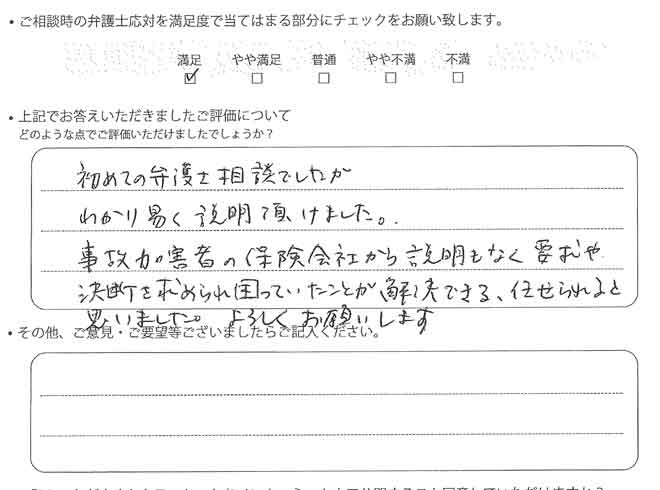 ・ご相談時の弁護士応対を満足度で当てはまる部分にチェックをお願い致します。
満足 やや満足 普通 やや不満 不満
・上記でお答えいただきましたご評価について
どのような点でご評価いただけましたでしょうか？
初めての弁護士相談でしたが
わかり易く説明頂けました。
事故加害者の保険会社から説明もなく要求や
決断を求められ困っていたことが、解決できる、任せられると
思いました。よろしくお願いします
・その他、ご意見・ご要望等ございましたらご記入ください。